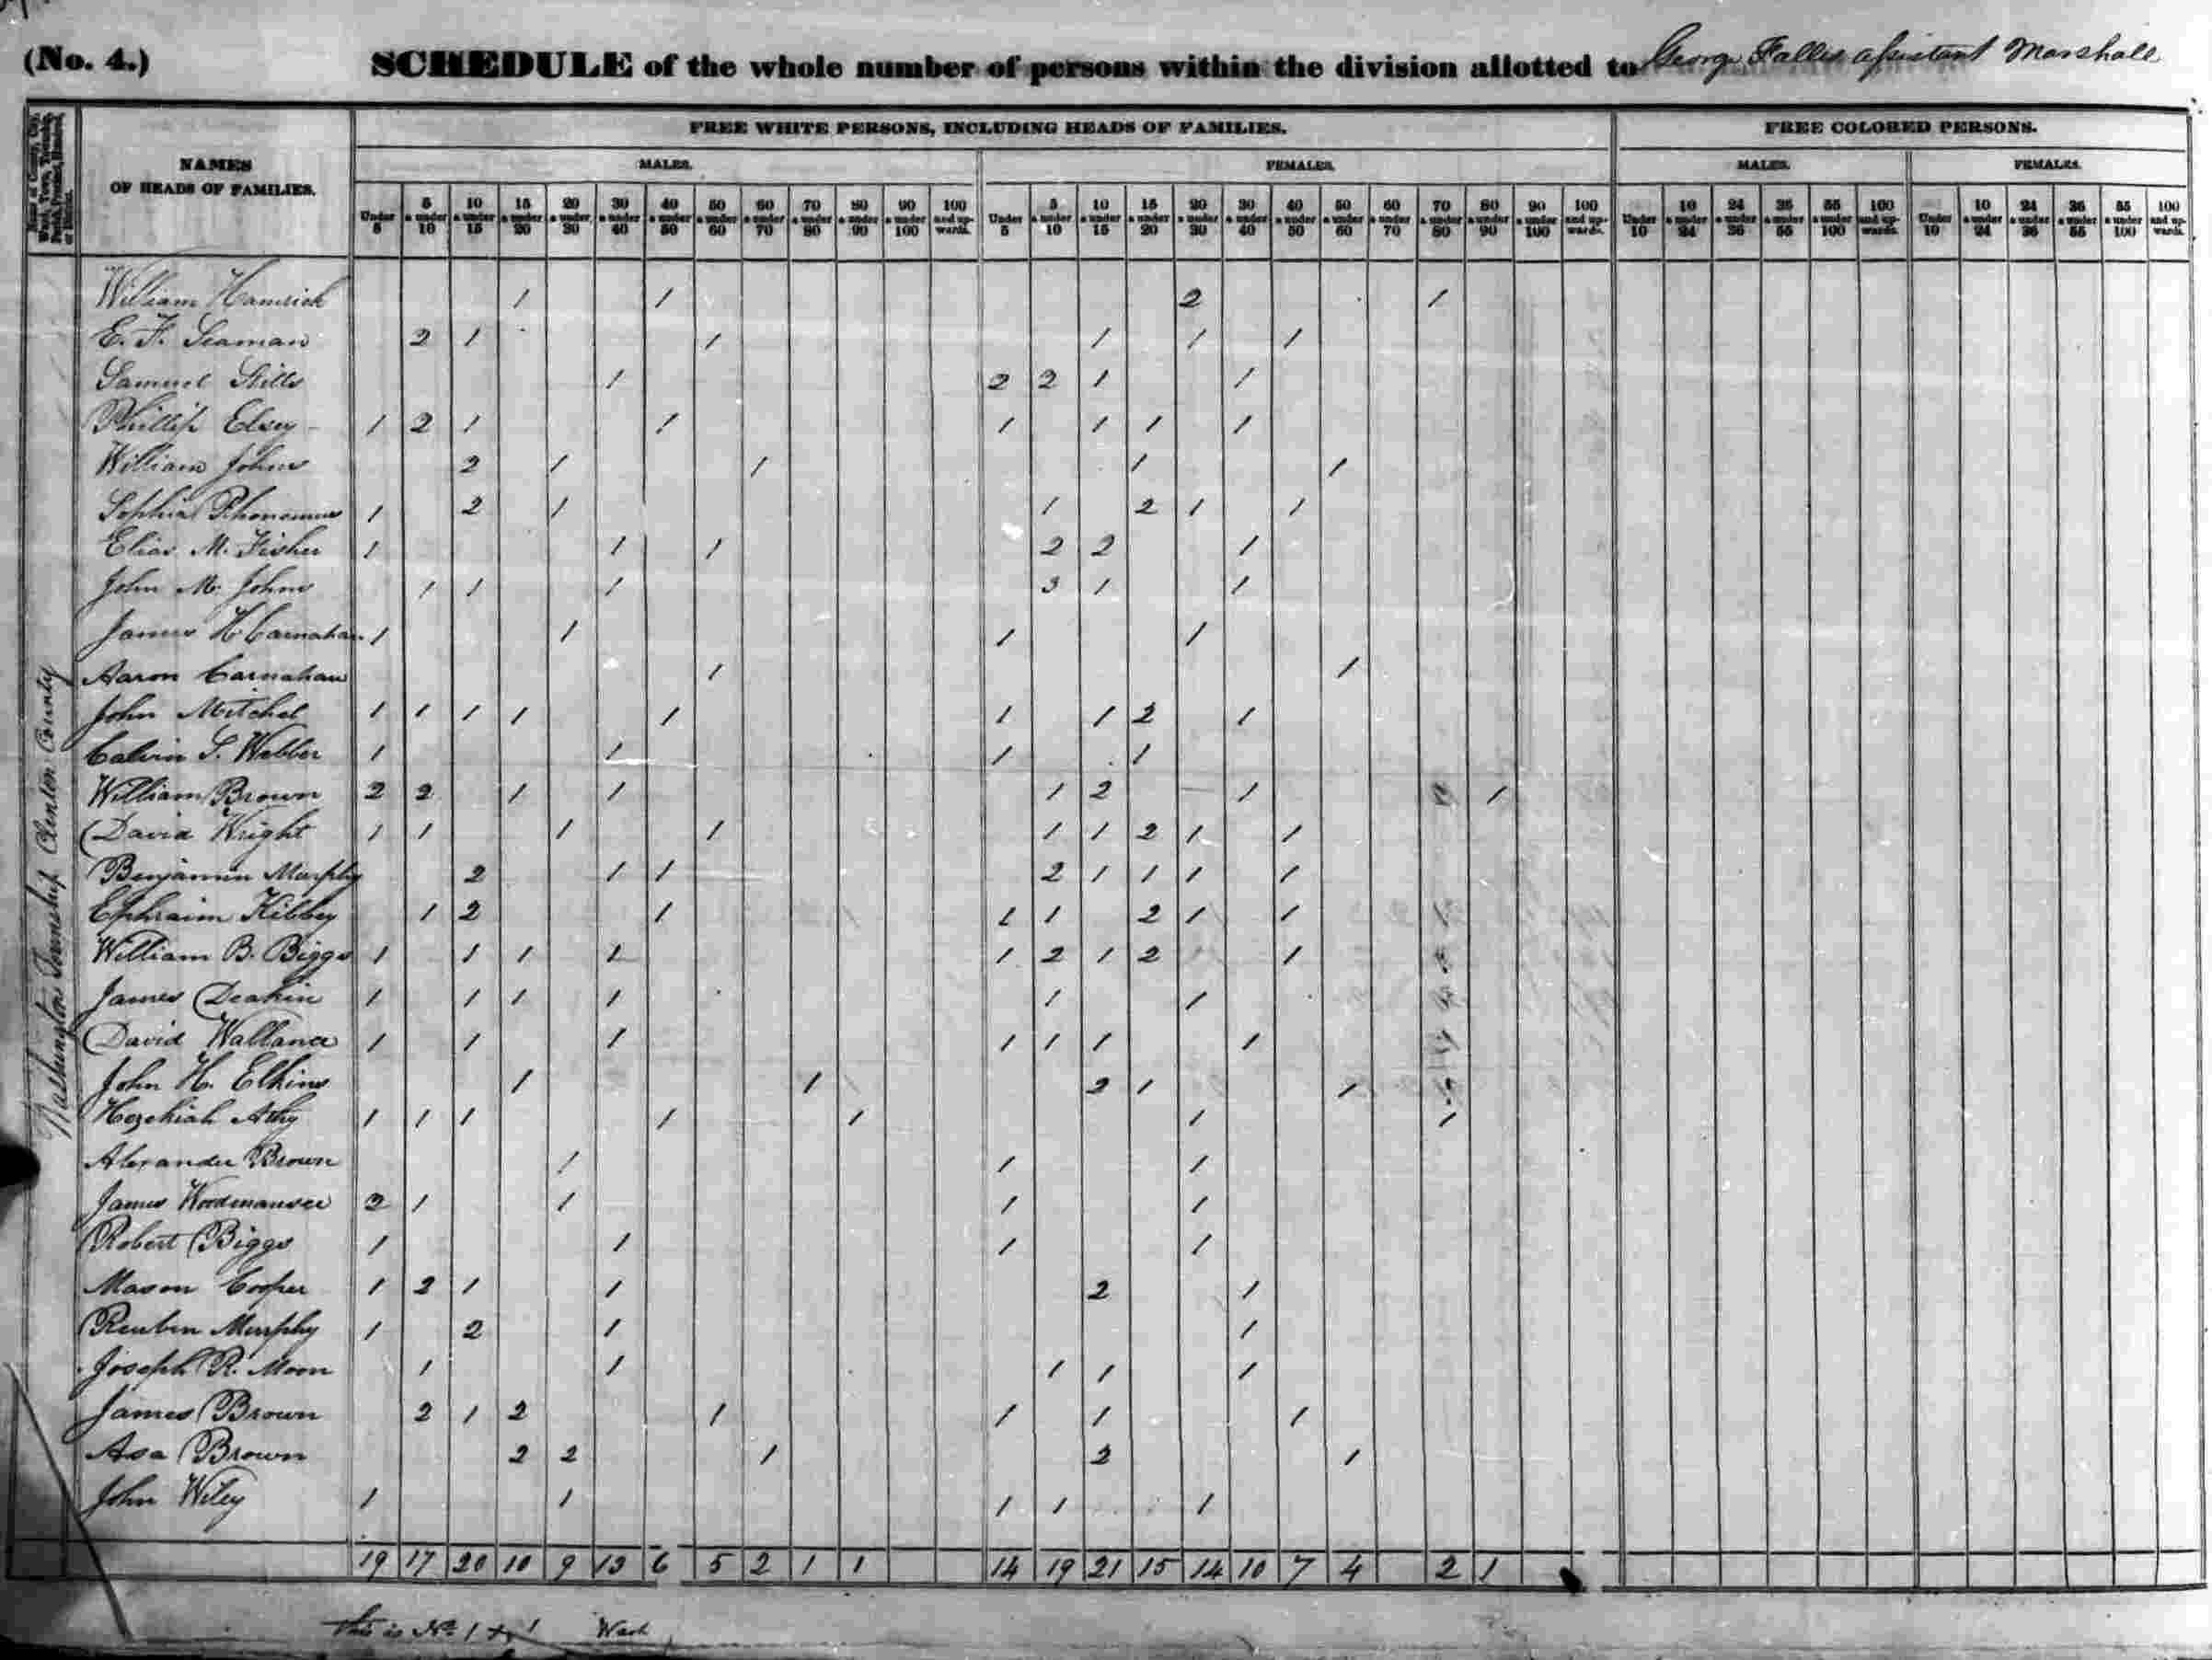 (No. 4.) SCHEDULE of the whole number of persons within the division allotted to George Fallis assistant Marshall
Name of County, City, Ward, Town, Township, Parish, Precinct, Hundred, or District.
NAMES OF HEADS OF FAMILIES.
FREE WHITE PERSONS, INCLUDING HEADS OF FAMILIES. FREE COLORED PERSONS.
MALES. FEMALES. MALES. FEMALES.
Under 5 | 5 & under 10 | 10 & under 15 | 15 & under 20 | 20 & under 30 | 30 & under 40 | 40 & under 50 | 50 & under 60 | 60 & under 70 | 70 & under 80 | 80 & under 90 | 90 & under 100 | 100 and upwards. | Under 5 | 5 & under 10 | 10 & under 15 | 15 & under 20 | 20 & under 30 | 30 & under 40 | 40 & under 50 | 50 & under 60 | 60 & under 70 | 70 & under 80 | 80 & under 90 | 90 & under 100 | 100 and upwards. | Under 10 | 10 & under 24 | 24 & under 36 | 36 & under 55 | 55 & under 100 | 100 and upwards. | Under 10 | 10 & under 24 | 24 & under 36 | 36 & under 55 | 55 & under 100 | 100 and upwards.
Washington Township Clinton County
William Hamrick 1 1 2 1
E. F. Seaman 2 1 1 1 1 1
Samuel Stills 1 2 2 1 1
Phillip Elsey 1 2 1 1 1 1 1 1
William Johns 2 1 1 1 1
Sophia 1 2 1 1 2 1 1
Elias M. Fisher 1 1 1 2 2 1
John M. Johns 1 1 1 3 1 1
James H Carnahan 1 1 1 1
Aaron Carnahan 1 1
John Mitchel 1 1 1 1 1 1 1 2 1
Calvin S. Webber 1 1 1 1
William Brown 2 2 1 1 1 2 1 1
David Wright 1 1 1 1 1 1 2 1 1
Benjamin Murphy 2 1 1 2 1 1 1 1
Ephraim Kibbey 1 2 1 1 1 2 1 1
William B. Biggs 1 1 1 1 1 2 1 2 1
James Deakin 1 1 1 1 1 1
David Wallance 1 1 1 1 1 1 1
John H. Elkins 1 1 2 1 1
Hezekiah Athy 1 1 1 1 1 1 1
Alexander Brown 1 1 1
James Woodmansee 2 1 1 1 1
Robert Biggs 1 1 1 1
Mason Cooper 1 2 1 1 2 1
Reuben Murphy 1 2 1 1
Joseph R. Moon 1 1 1 1 1
James Brown 2 1 2 1 1 1 1
Asa Brown 2 2 1 2 1
John Wiley 1 1 1 1 1
19 17 20 10 9 13 6 5 2 1 1 14 19 21 15 14 10 7 4 2 1
this is No. 1 Wash